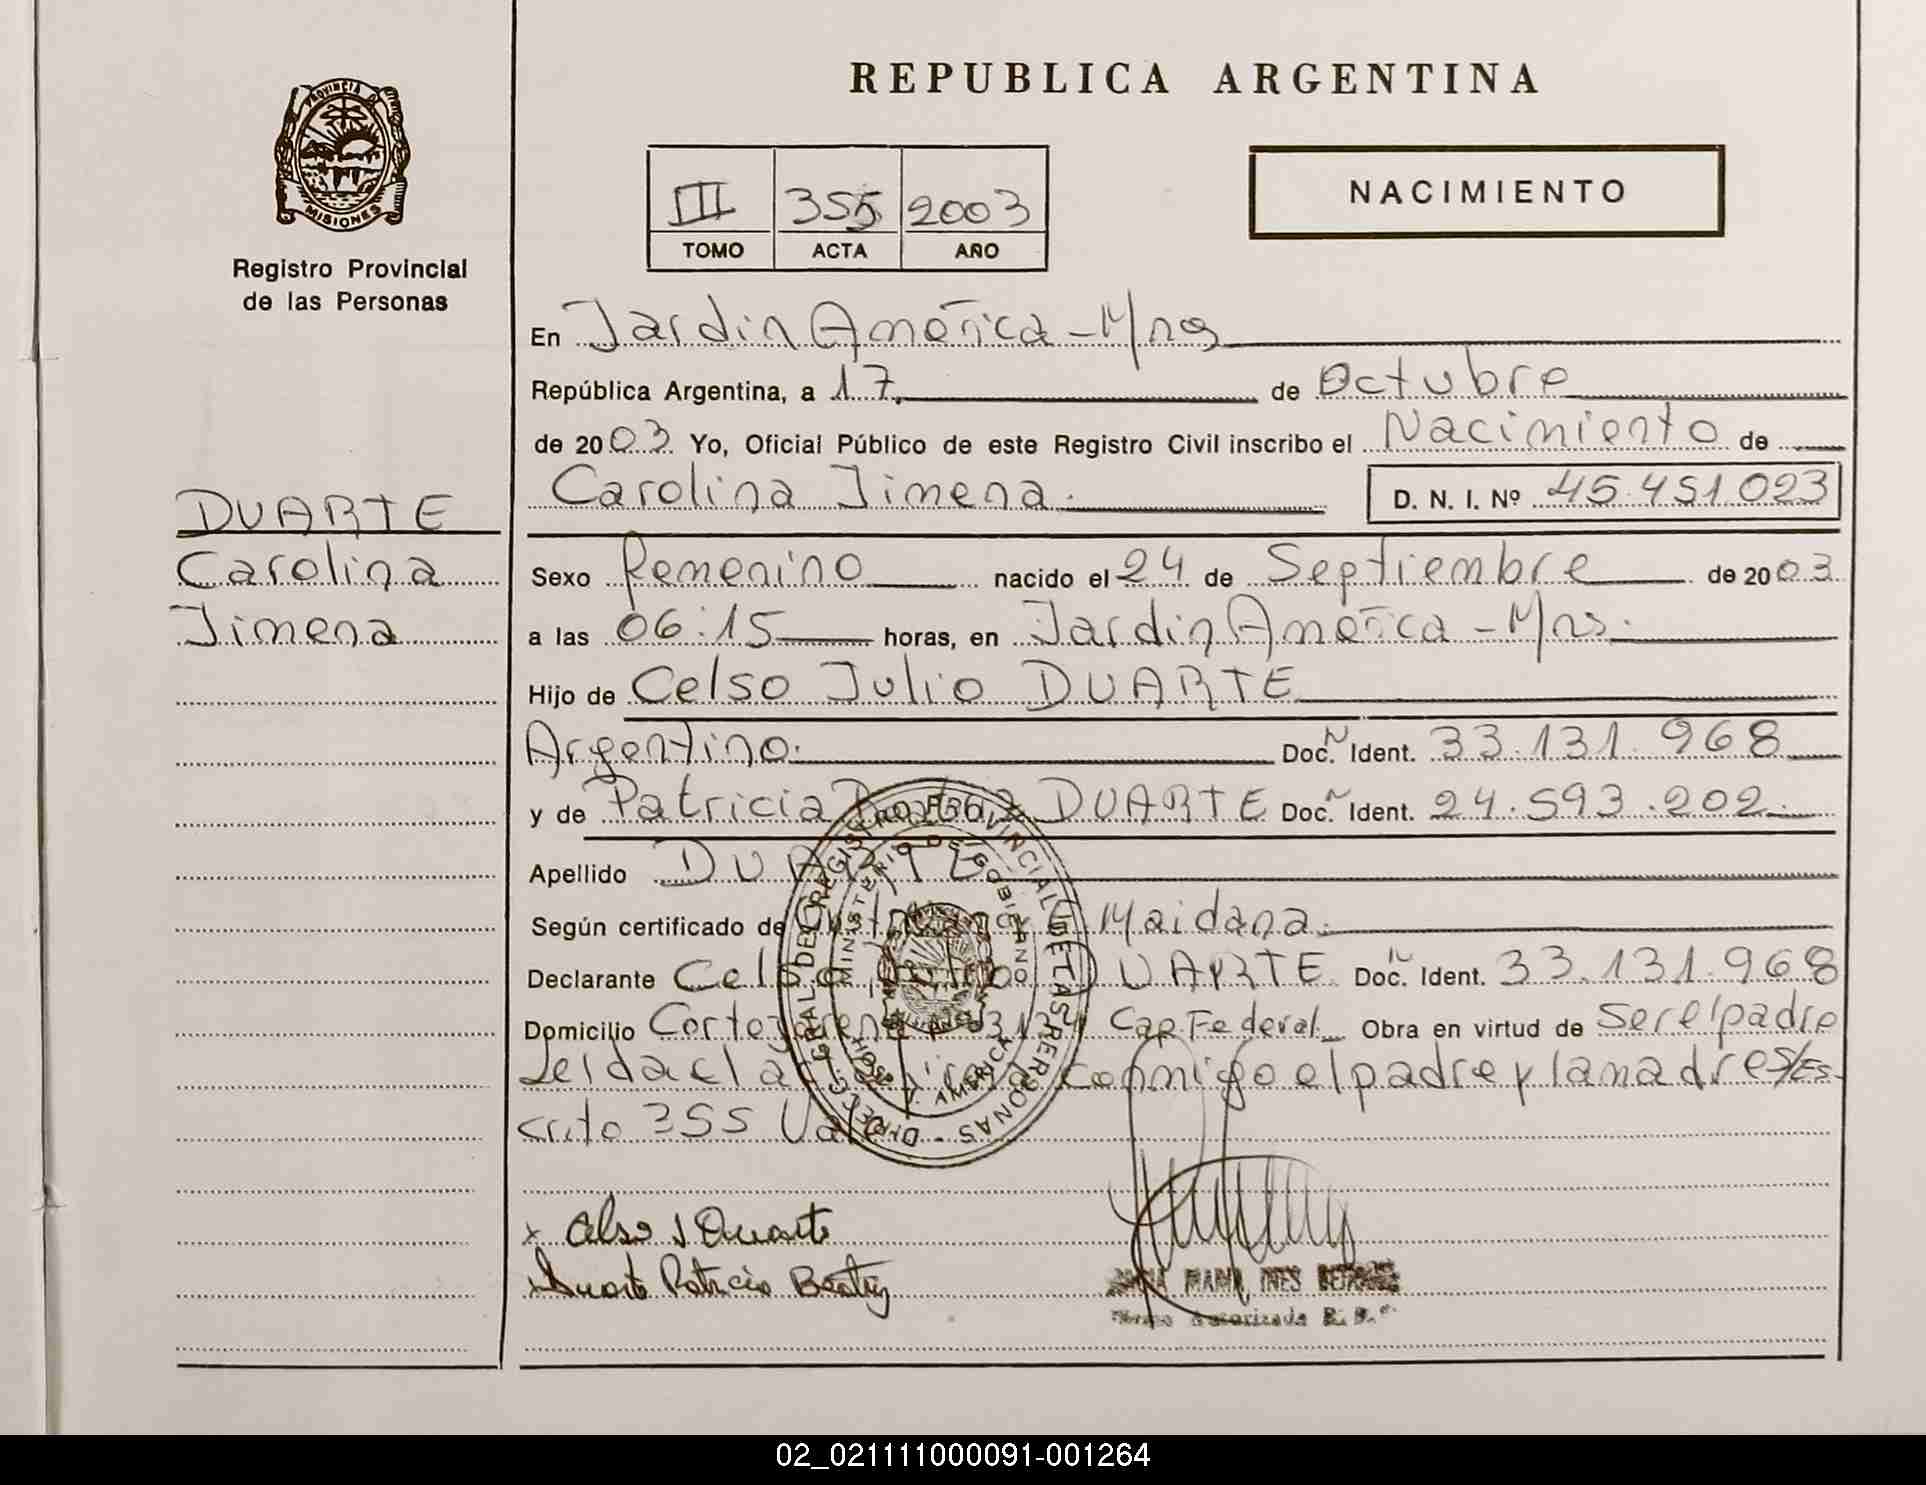 REPUBLICA ARGENTINA
PROVINCIA DE
MISIONES
Registro Provincial
de las Personas
III 355 2003
TOMO ACTA AÑO
NACIMIENTO
En Jardin América - Mnes
República Argentina, a 17 de Octubre
de 2003 Yo, Oficial Público de este Registro Civil inscribo el Nacimiento de
Carolina Jimena. D. N. I. Nº 45.451.023
DUARTE
Carolina
Jimena
Sexo femenino nacido el 24 de Septiembre de 2003
a las 06:15 horas, en Jardin América - Mns.
Hijo de Celso Julio DUARTE
Argentino. Doc. N Ident. 33.131.968
y de Patricia Beatriz DUARTE Doc. N Ident. 24.593.202.
Apellido DUARTE
Según certificado de Maidana.
Declarante Celso Julio DUARTE Doc. N Ident. 33.131.968
Domicilio Cap. Federal Obra en virtud de ser el padre
Leida el acta conmigo el padre y la madre S/Es-
crito 355 Vale
DIRECC. GRAL. DEL REGISTRO PROVINCIAL DE LAS PERSONAS
MINISTERIO DE GOBIERNO
HOSP. J. AMERICA
x Celso J Duarte
x Duarte Patricia Beatriz
MARIA INES
Autorizada
02_021111000091-001264